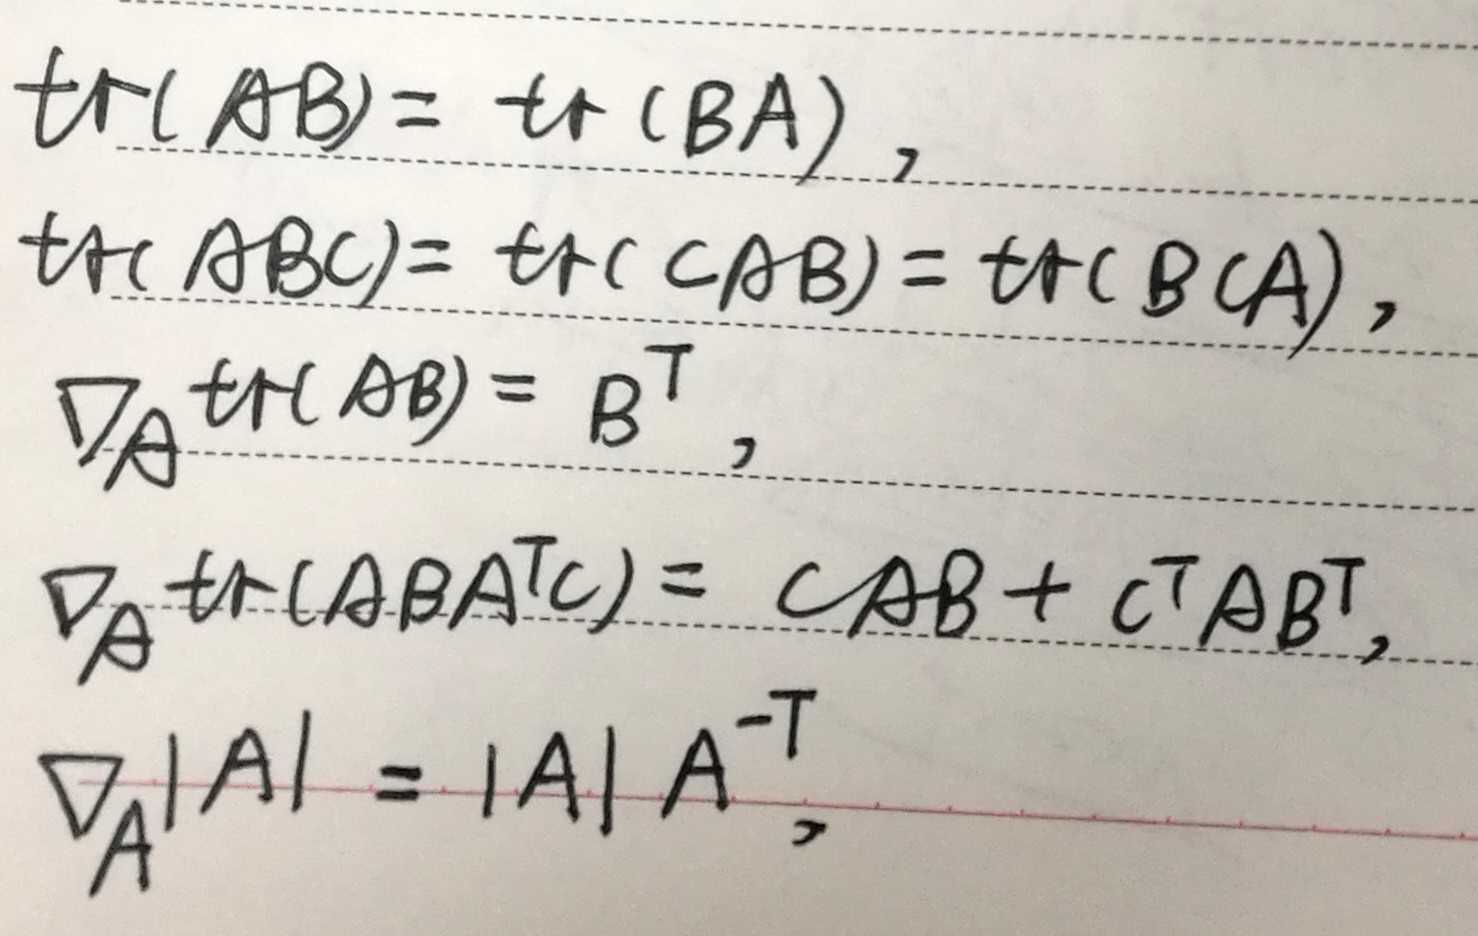 tr(AB) = tr(BA),
tr(ABC) = tr(CAB) = tr(BCA),
∇_A tr(AB) = B^T,
∇_A tr(ABA^TC) = CAB + C^TAB^T,
∇_A|A| = |A|A^{-T},